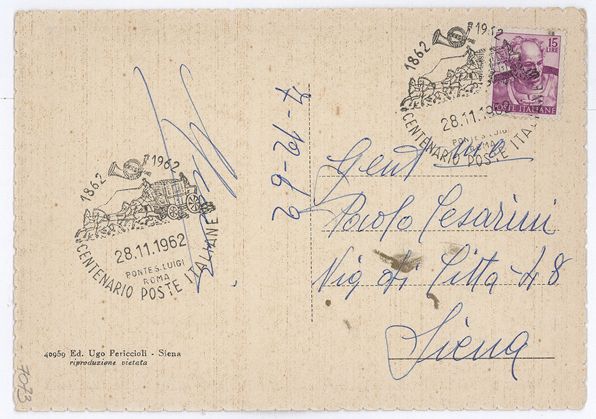 1862 1962
28.11.1962
PONTE S. LUIGI
ROMA
CENTENARIO POSTE ITALIANE
40959 Ed. Ugo Periccioli - Siena
riproduzione vietata
7073
7-12-62
1862 1962
28.11.1962
PONTE S. LUIGI
ROMA
CENTENARIO POSTE ITALIANE
15
LIRE
POSTE ITALIANE
Paolo Cesarini
Via di Città - 48
Siena